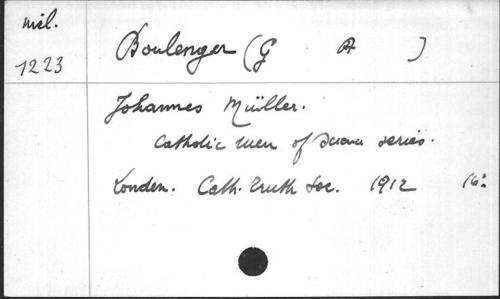 mil. Boulenger (G A )
1223
Johannes Müller.
Catholic men of Science series.
London. Cath. Truth Soc. 1912 16º